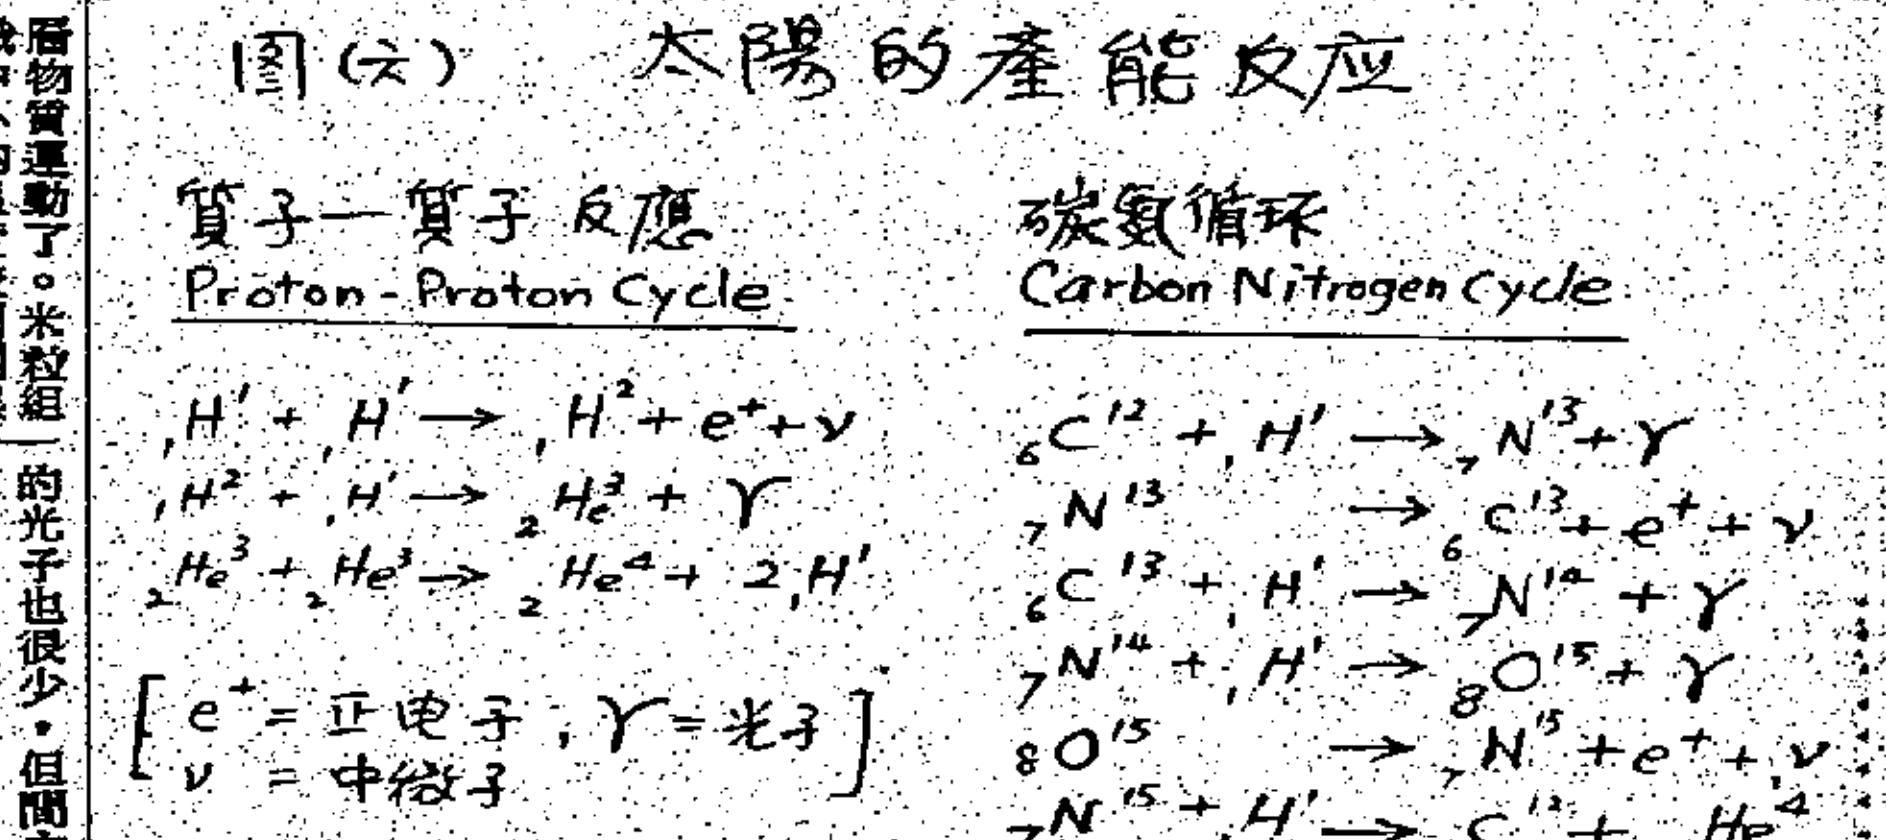 图(六) 太陽的產能反应
質子—質子反應
Proton-Proton Cycle
₁H¹ + ₁H¹ → ₁H² + e⁺ + ν
₁H² + ₁H¹ → ₂He³ + γ
₂He³ + ₂He³ → ₂He⁴ + 2₁H¹
[e⁺ = 正电子, γ = 光子
ν = 中微子]
碳氮循环
Carbon Nitrogen Cycle
₆C¹² + ₁H¹ → ₇N¹³ + γ
₇N¹³ → ₆C¹³ + e⁺ + ν
₆C¹³ + ₁H¹ → ₇N¹⁴ + γ
₇N¹⁴ + ₁H¹ → ₈O¹⁵ + γ
₈O¹⁵ → ₇N¹⁵ + e⁺ + ν
₇N¹⁵ + H¹ → C¹² + He⁴
層物質運動了。米粒組
的光子也很少,但間